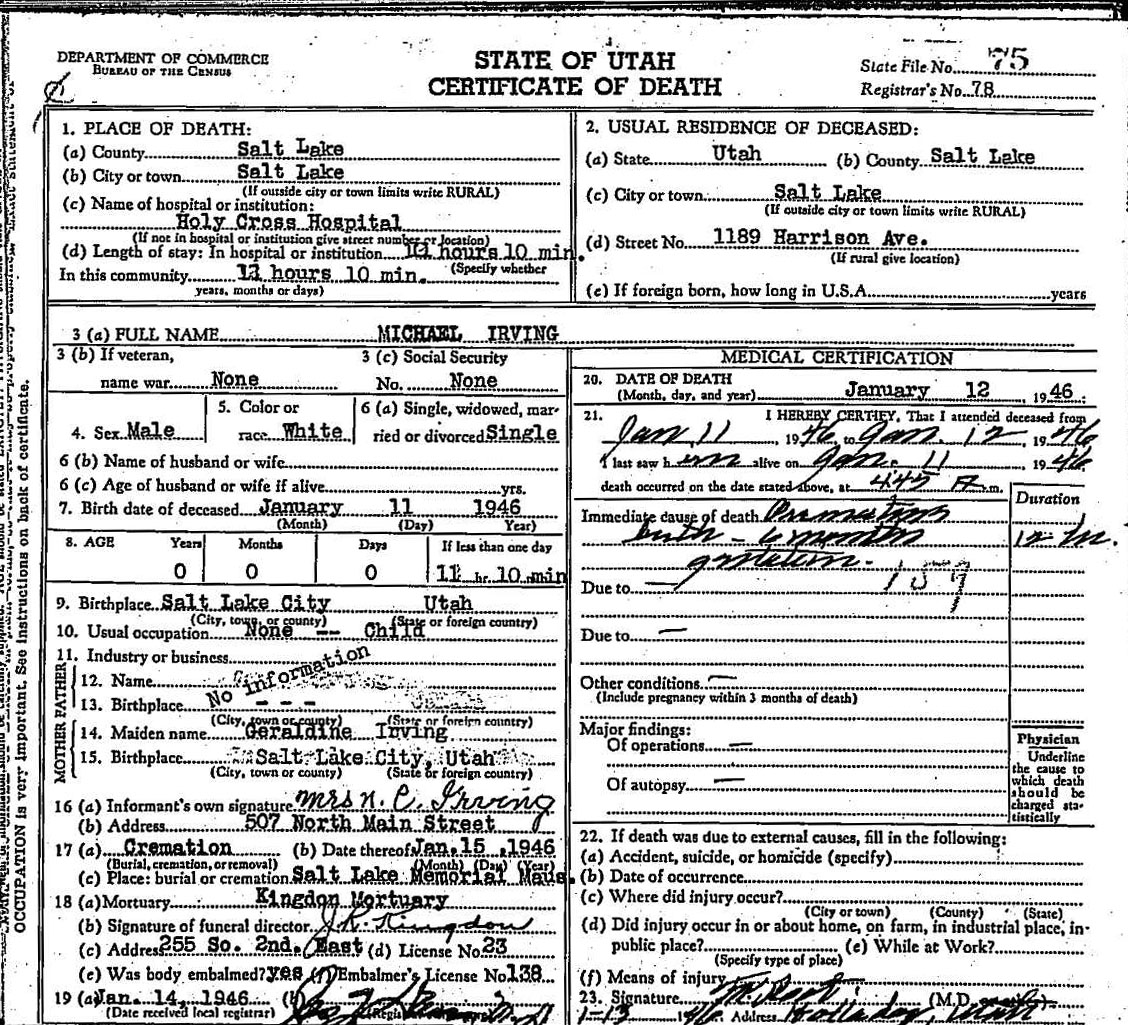 DEPARTMENT OF COMMERCE
BUREAU OF THE CENSUS
STATE OF UTAH
CERTIFICATE OF DEATH
State File No. 75
Registrar's No. 78
1. PLACE OF DEATH:
(a) County Salt Lake
(b) City or town Salt Lake
(If outside city or town limits write RURAL)
(c) Name of hospital or institution:
Holy Cross Hospital
(If not in hospital or institution give street number or location)
(d) Length of stay: In hospital or institution hours 10 min.
(Specify whether
In this community hours 10 min.
years, months or days)
2. USUAL RESIDENCE OF DECEASED:
(a) State Utah (b) County Salt Lake
(c) City or town Salt Lake
(If outside city or town limits write RURAL)
(d) Street No. 1189 Harrison Ave.
(If rural give location)
(e) If foreign born, how long in U.S.A. years
3 (a) FULL NAME MICHAEL IRVING
3 (b) If veteran,
name war None
3 (c) Social Security
No. None
4. Sex Male
5. Color or
race White
6 (a) Single, widowed, mar-
ried or divorced Single
6 (b) Name of husband or wife
6 (c) Age of husband or wife if alive yrs.
7. Birth date of deceased January 11 1946
(Month) (Day) Year)
8. AGE Years Months Days If less than one day
0 0 0 hr. 10 min
9. Birthplace Salt Lake City Utah
(City, town, or county) (State or foreign country)
10. Usual occupation None -- Child
11. Industry or business
FATHER
12. Name No information
13. Birthplace - - -
(City, town or county) (State or foreign country)
MOTHER
14. Maiden name Geraldine Irving
15. Birthplace Salt Lake City, Utah
(City, town or county) (State or foreign country)
16 (a) Informant's own signature Mrs N. C. Irving
(b) Address 507 North Main Street
17 (a) Cremation (b) Date thereof Jan. 15, 1946
(Burial, cremation, or removal) (Month) (Day) (Year)
(c) Place: burial or cremation Salt Lake Memorial Maus.
18 (a) Mortuary Kingdon Mortuary
(b) Signature of funeral director J.R. Kingdon
(c) Address 255 So. 2nd. East (d) License No. 23
(e) Was body embalmed? yes (f) Embalmer's License No. 138
19 (a) Jan. 14, 1946 (b)
(Date received local registrar)
MEDICAL CERTIFICATION
20. DATE OF DEATH
(Month, day, and year) January 12 1946
21. I HEREBY CERTIFY, That I attended deceased from
Jan 11, 1946 to Jan. 12, 1946
I last saw him alive on Jan. 11 1946
death occurred on the date stated above, at 4:45 A m.
Duration
Immediate cause of death Premature
birth - 6 months 12 hr.
gestation. 159
Due to —
Due to —
Other conditions —
(Include pregnancy within 3 months of death)
Major findings:
Of operations —
Of autopsy —
Physician
Underline
the cause to
which death
should be
charged sta-
tistically
22. If death was due to external causes, fill in the following:
(a) Accident, suicide, or homicide (specify)
(b) Date of occurrence
(c) Where did injury occur?
(City or town) (County) (State)
(d) Did injury occur in or about home, on farm, in industrial place, in-
public place? (e) While at Work?
(Specify type of place)
(f) Means of injury
23. Signature (M.D.
1-13 1946 Address Holladay, Utah
OCCUPATION is very important. See instructions on back of certificate.